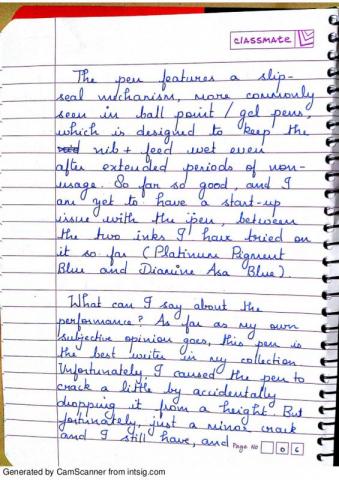 classmate
The pen features a slip-
seal mechanism, more commonly
seen in ball point / gel pens,
which is designed to keep the
nib + feed wet even
after extended periods of non-
usage. So far so good, and I
am yet to have a start-up
issue with the pen, between
the two inks I have tried on
it so far (Platinum Pigment
Blue and Diamine Asa Blue).
What can I say about the
performance? As far as my own
subjective opinion goes, this pen is
the best writer in my collection
Unfortunately, I caused the pen to
crack a little by accidentally
dropping it from a height. But
fortunately, just a minor crack
and I still have, and
Page No 06
Generated by CamScanner from intsig.com